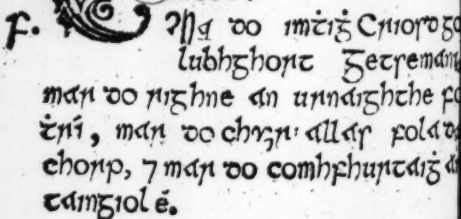 F.
do imṫiġ Criosd go
lubhghort Getseman
mar do righne an urnaighthe fo
ṫrí, mar do allas fola da
chorp, ⁊ mar do comhfhurtaiġ an
taingiol é.